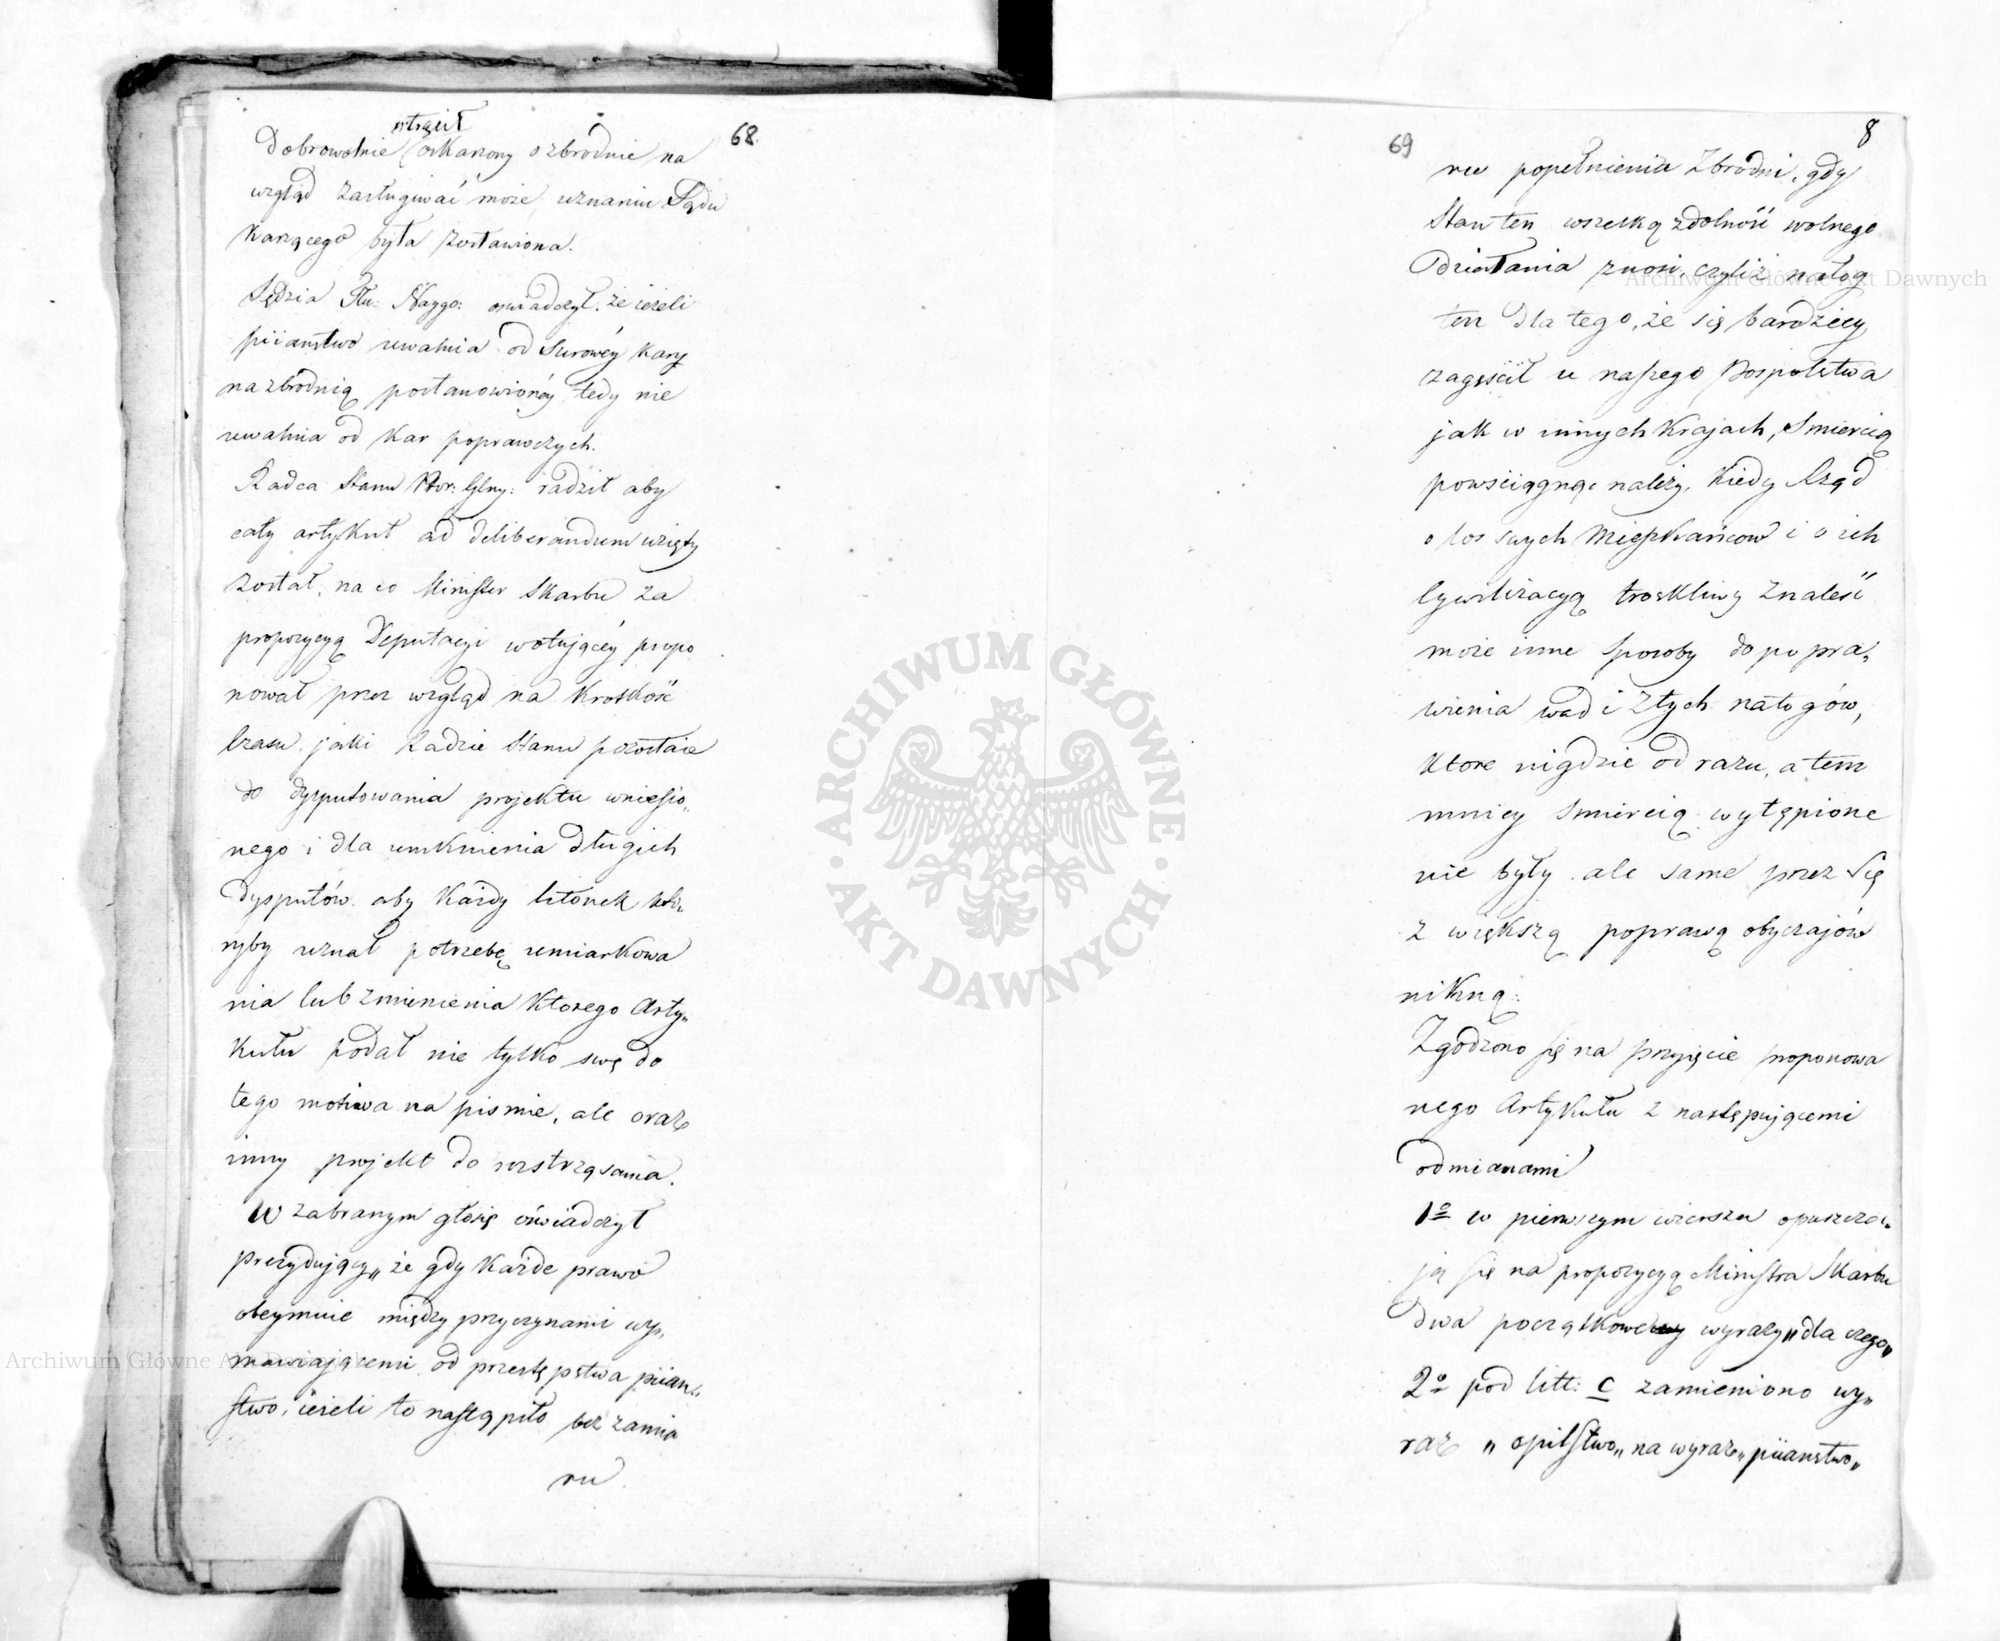 68.
utracił
Dobrowolnie oskarzony o zbrodnie na
wzgląd zasługiwać może, uznaniu Sądu
karzącego była zostawiona.
Sędzia Tłu: Naygo: oswiadczył, że ieżeli
piiaństwo uwalnia od surowéy kary
na zbrodnią postanowionéy, tedy nie
uwalnia od kar poprawczych.
Radca Stanu Glny: radził aby
cały artykuł ad deliberandum wzięty
został, na co Minister Skarbu za
propozycyą Deputacyi wotuiącéy propo
nował przez wzgląd na krotkość
Czasu jaki Radzie Stanu pozostaie
do dysputowania projektu wniesio„
nego i dla uniknienia długich
dysputów aby każdy Członek któ„
ryby uznał potrzebę umiarkowa
nia lub zmienienia ktorego Arty„
kułu podał nie tylko swe do
tego motiwa na pismie, ale oraz
inny projekt do rozstrząsania.
W zabranym głosie oświadczył
Prezydujący„ że gdy każde prawo
obeymuie między przyczynami wy„
mawiającemi od przestępstwa piian„
stwo, ieżeli to nastąpiło bez zamia
ru
69
8
ru popełnienia Zbrodni, gdy
Stan ten wszelką zdolność wolnego
Działania znosi, czyliż nałog
ten dla tego, że się bardziey
zagęścił u naszego Pospolstwa
jak w innych Krajach, Smiercią
powściągnąć należy, kiedy Rząd
o los swych Mieszkańcow i o ich
Cywilizacyą troskliwy znaleść
może inne sposoby do popra„
wienia wad i złych nałogów,
ktore nigdzie od razu, a tem
mniey smiercią wytępione
nie były ale same przez się
z większą poprawą obyczajów
nikną:
Zgodzono się na przyięcie proponowa
nego Artykułu z następującemi
odmianami
1º w pierwszym wierszu opuszcza„
ją się na propozycyą Ministra Skarbu
dwa początkowe wyrazy „dla czego„
2º pod litt: C zamieniono wy„
raz „opilstwo„ na wyraz „piianstwo„
Archiwum Główne Akt Dawnych
Archiwum Główne Akt Dawnych
ARCHIWUM GŁÓWNE · AKT DAWNYCH ·